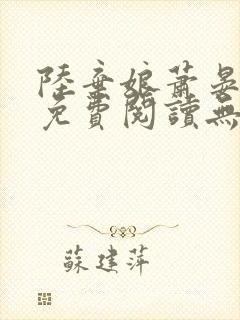 陸棄娘蕭晏
免費閱讀無
蘇建萍